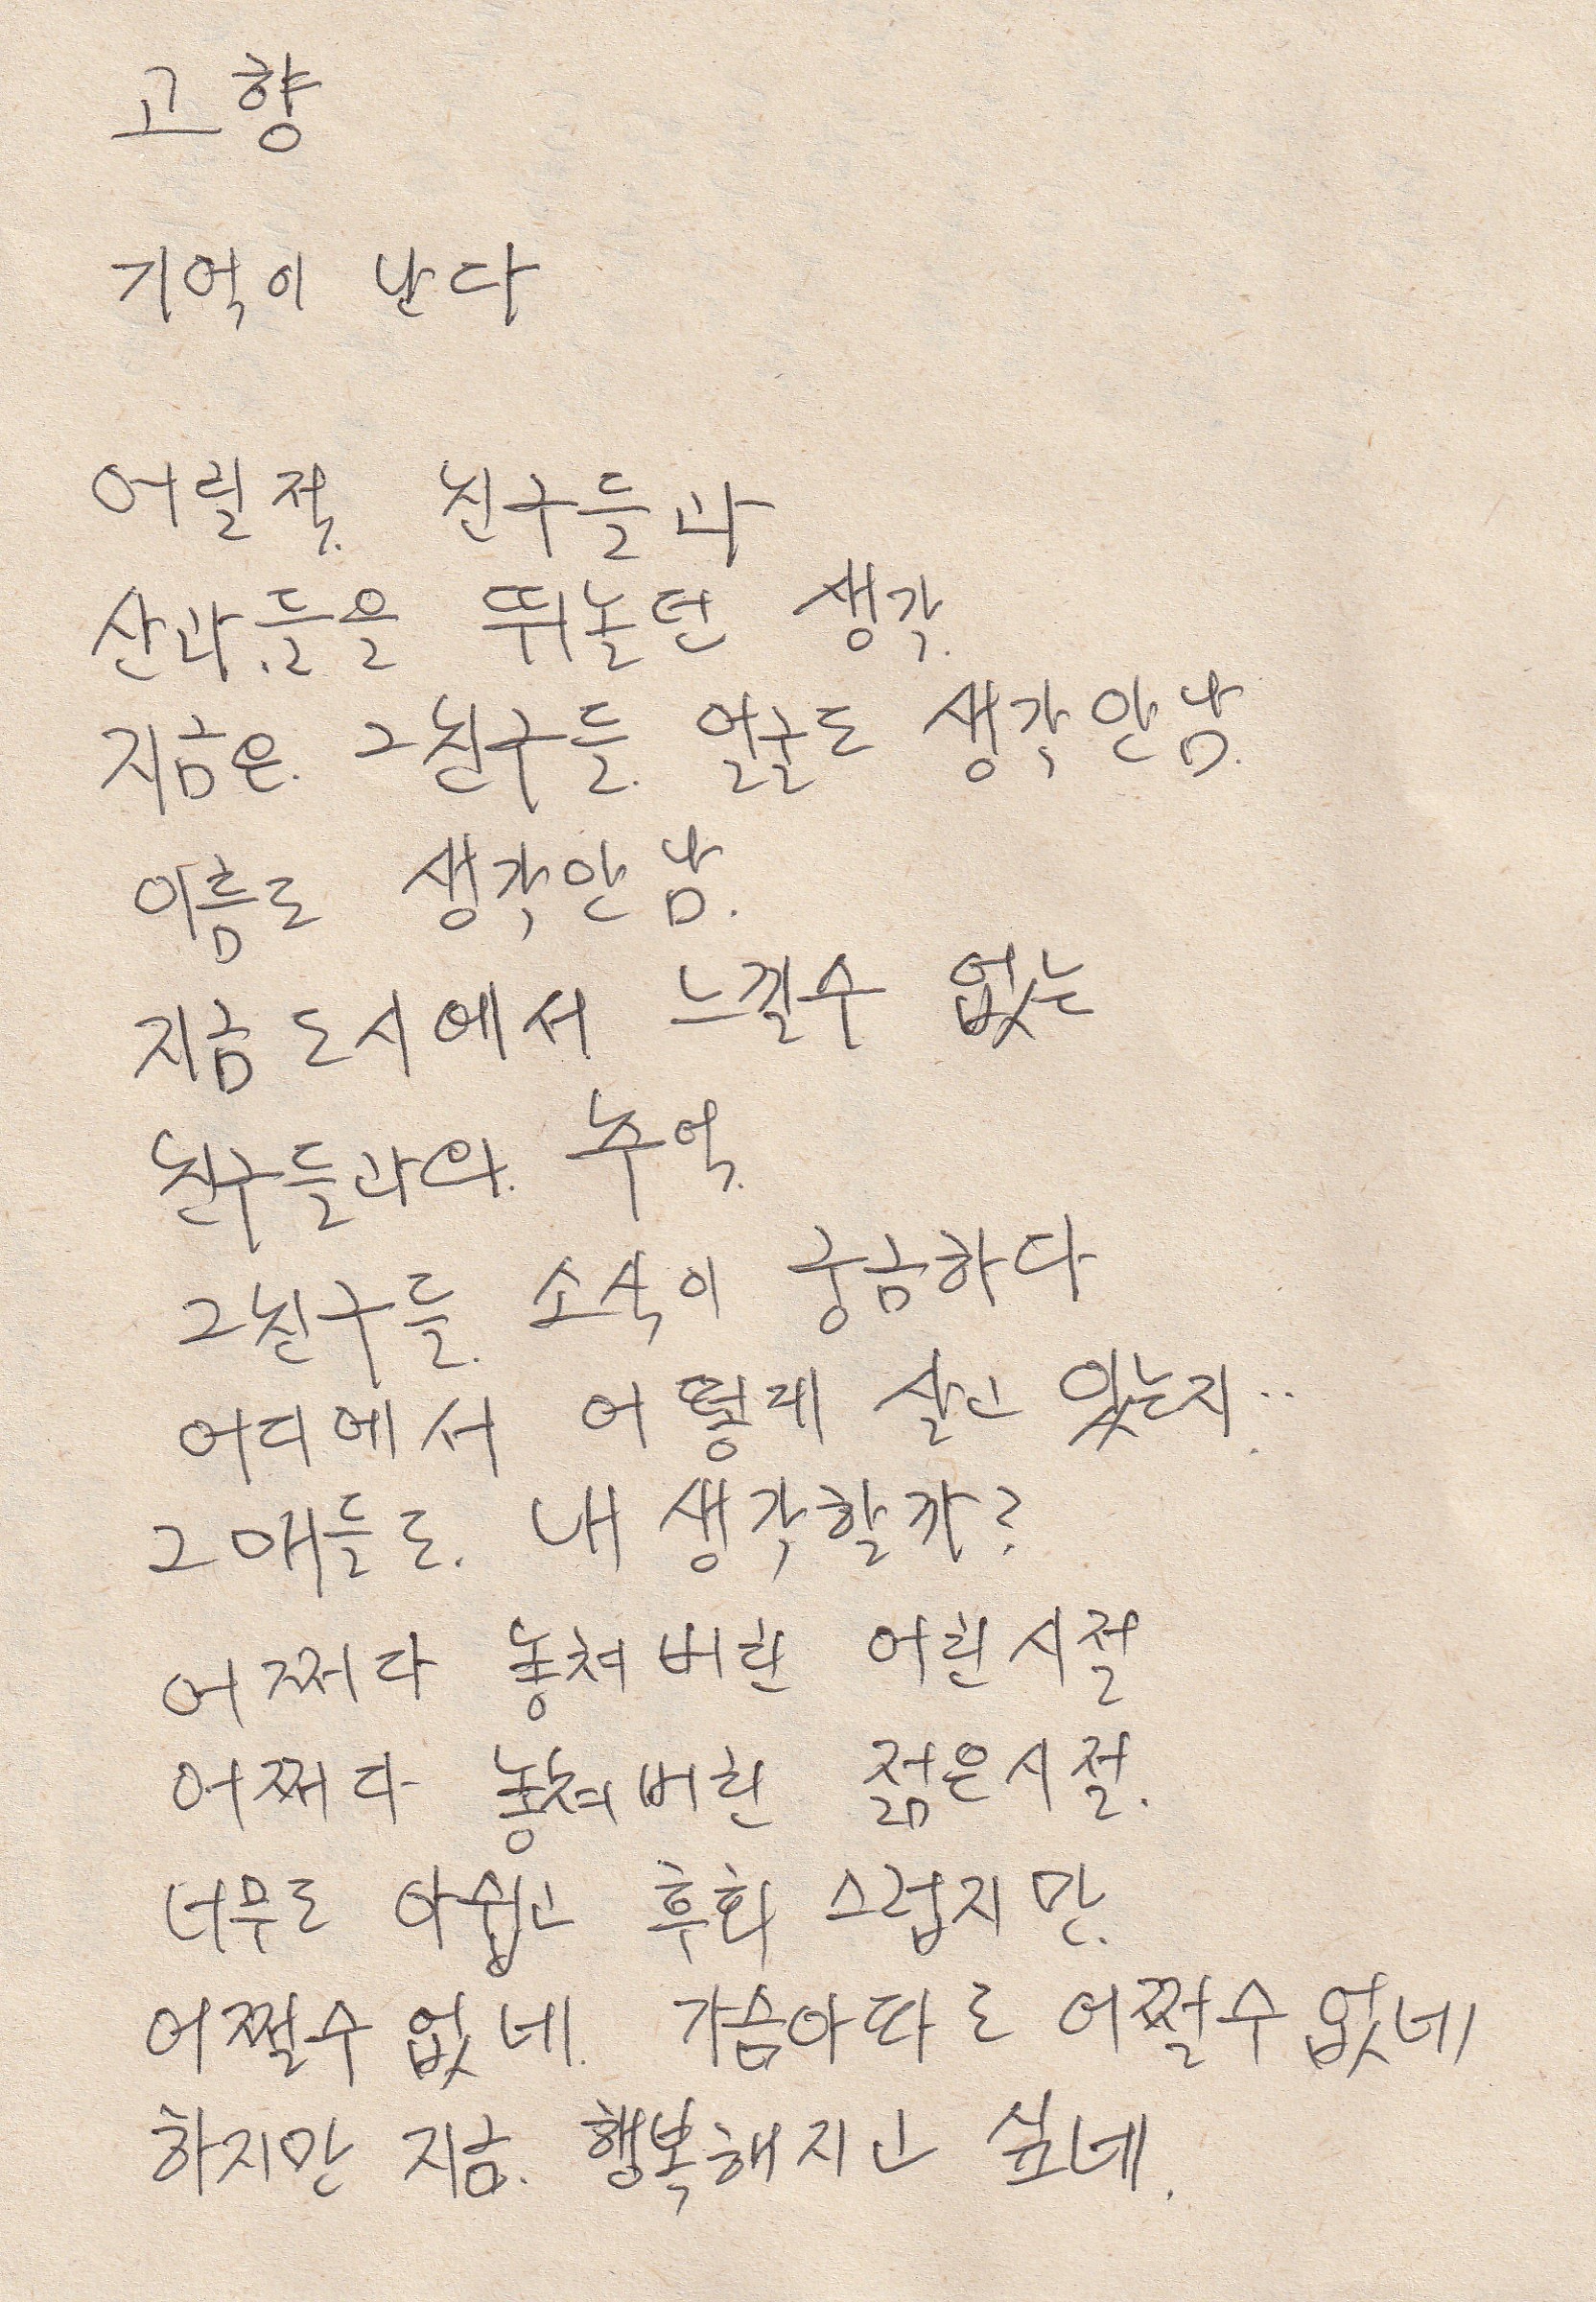 고향
기억이 난다
어릴적. 친구들과
산과.들을 뛰놀던 생각.
지금은. 그친구들. 얼굴도 생각안남.
이름도 생각안남.
지금도시에서 느낄수 없는
친구들과의. 추억.
그친구들. 소식이 궁금하다
어디에서 어떻게 살고 있는지...
그애들도. 내생각할까?
어쩌다 놓쳐버린 어린시절
어쩌다 놓쳐버린 젊은시절.
너무도 아쉽고 후회스럽지만.
어쩔수없네. 가슴아파도 어쩔수없네
하지만 지금. 행복해지고 싶네.